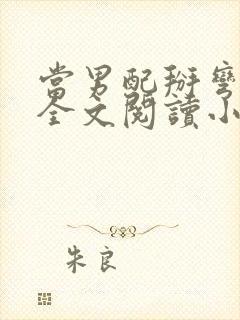 當男配掰彎
全文閱讀小
朱良